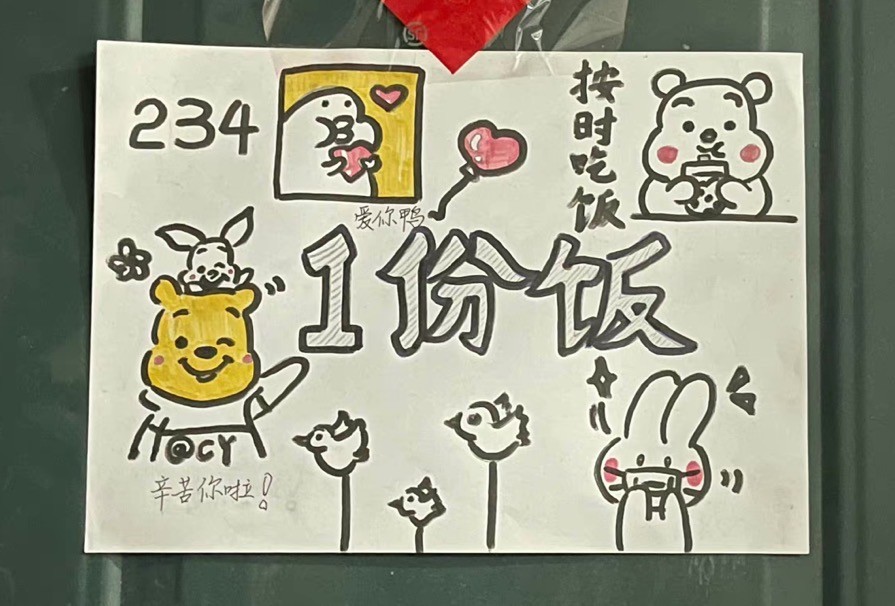 234
爱你鸭
按时吃饭
1份饭
@CY
辛苦你啦!